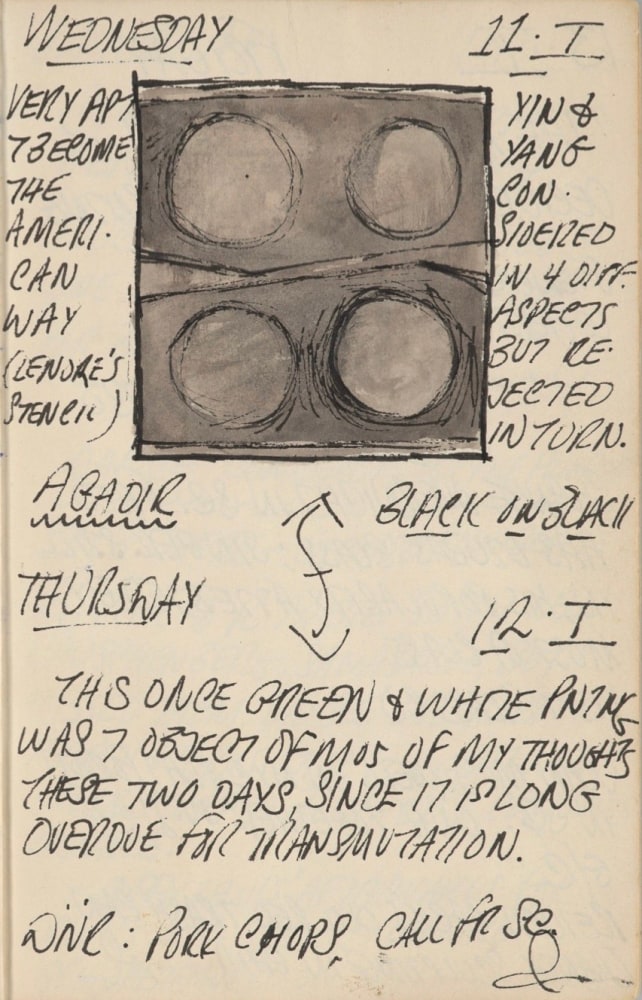 WEDNESDAY 11·I
VERY APT
7 BECOME
THE
AMERI·
CAN
WAY
(LENORE'S
STENCIL)
YIN &
YANG
CON·
SIDERED
IN 4 DIFF.
ASPECTS
BUT RE·
JECTED
IN TURN.
AGADIR BLACK ON BLACK
THURSDAY 12·I
THIS ONCE GREEN & WHITE PNTNG
WAS 7 OBJECT OF MOS OF MY THOUGHTS
THESE TWO DAYS, SINCE IT IS LONG
OVERDUE FOR TRANSMUTATION.
DINR: PORK CHOPS, CALL FR